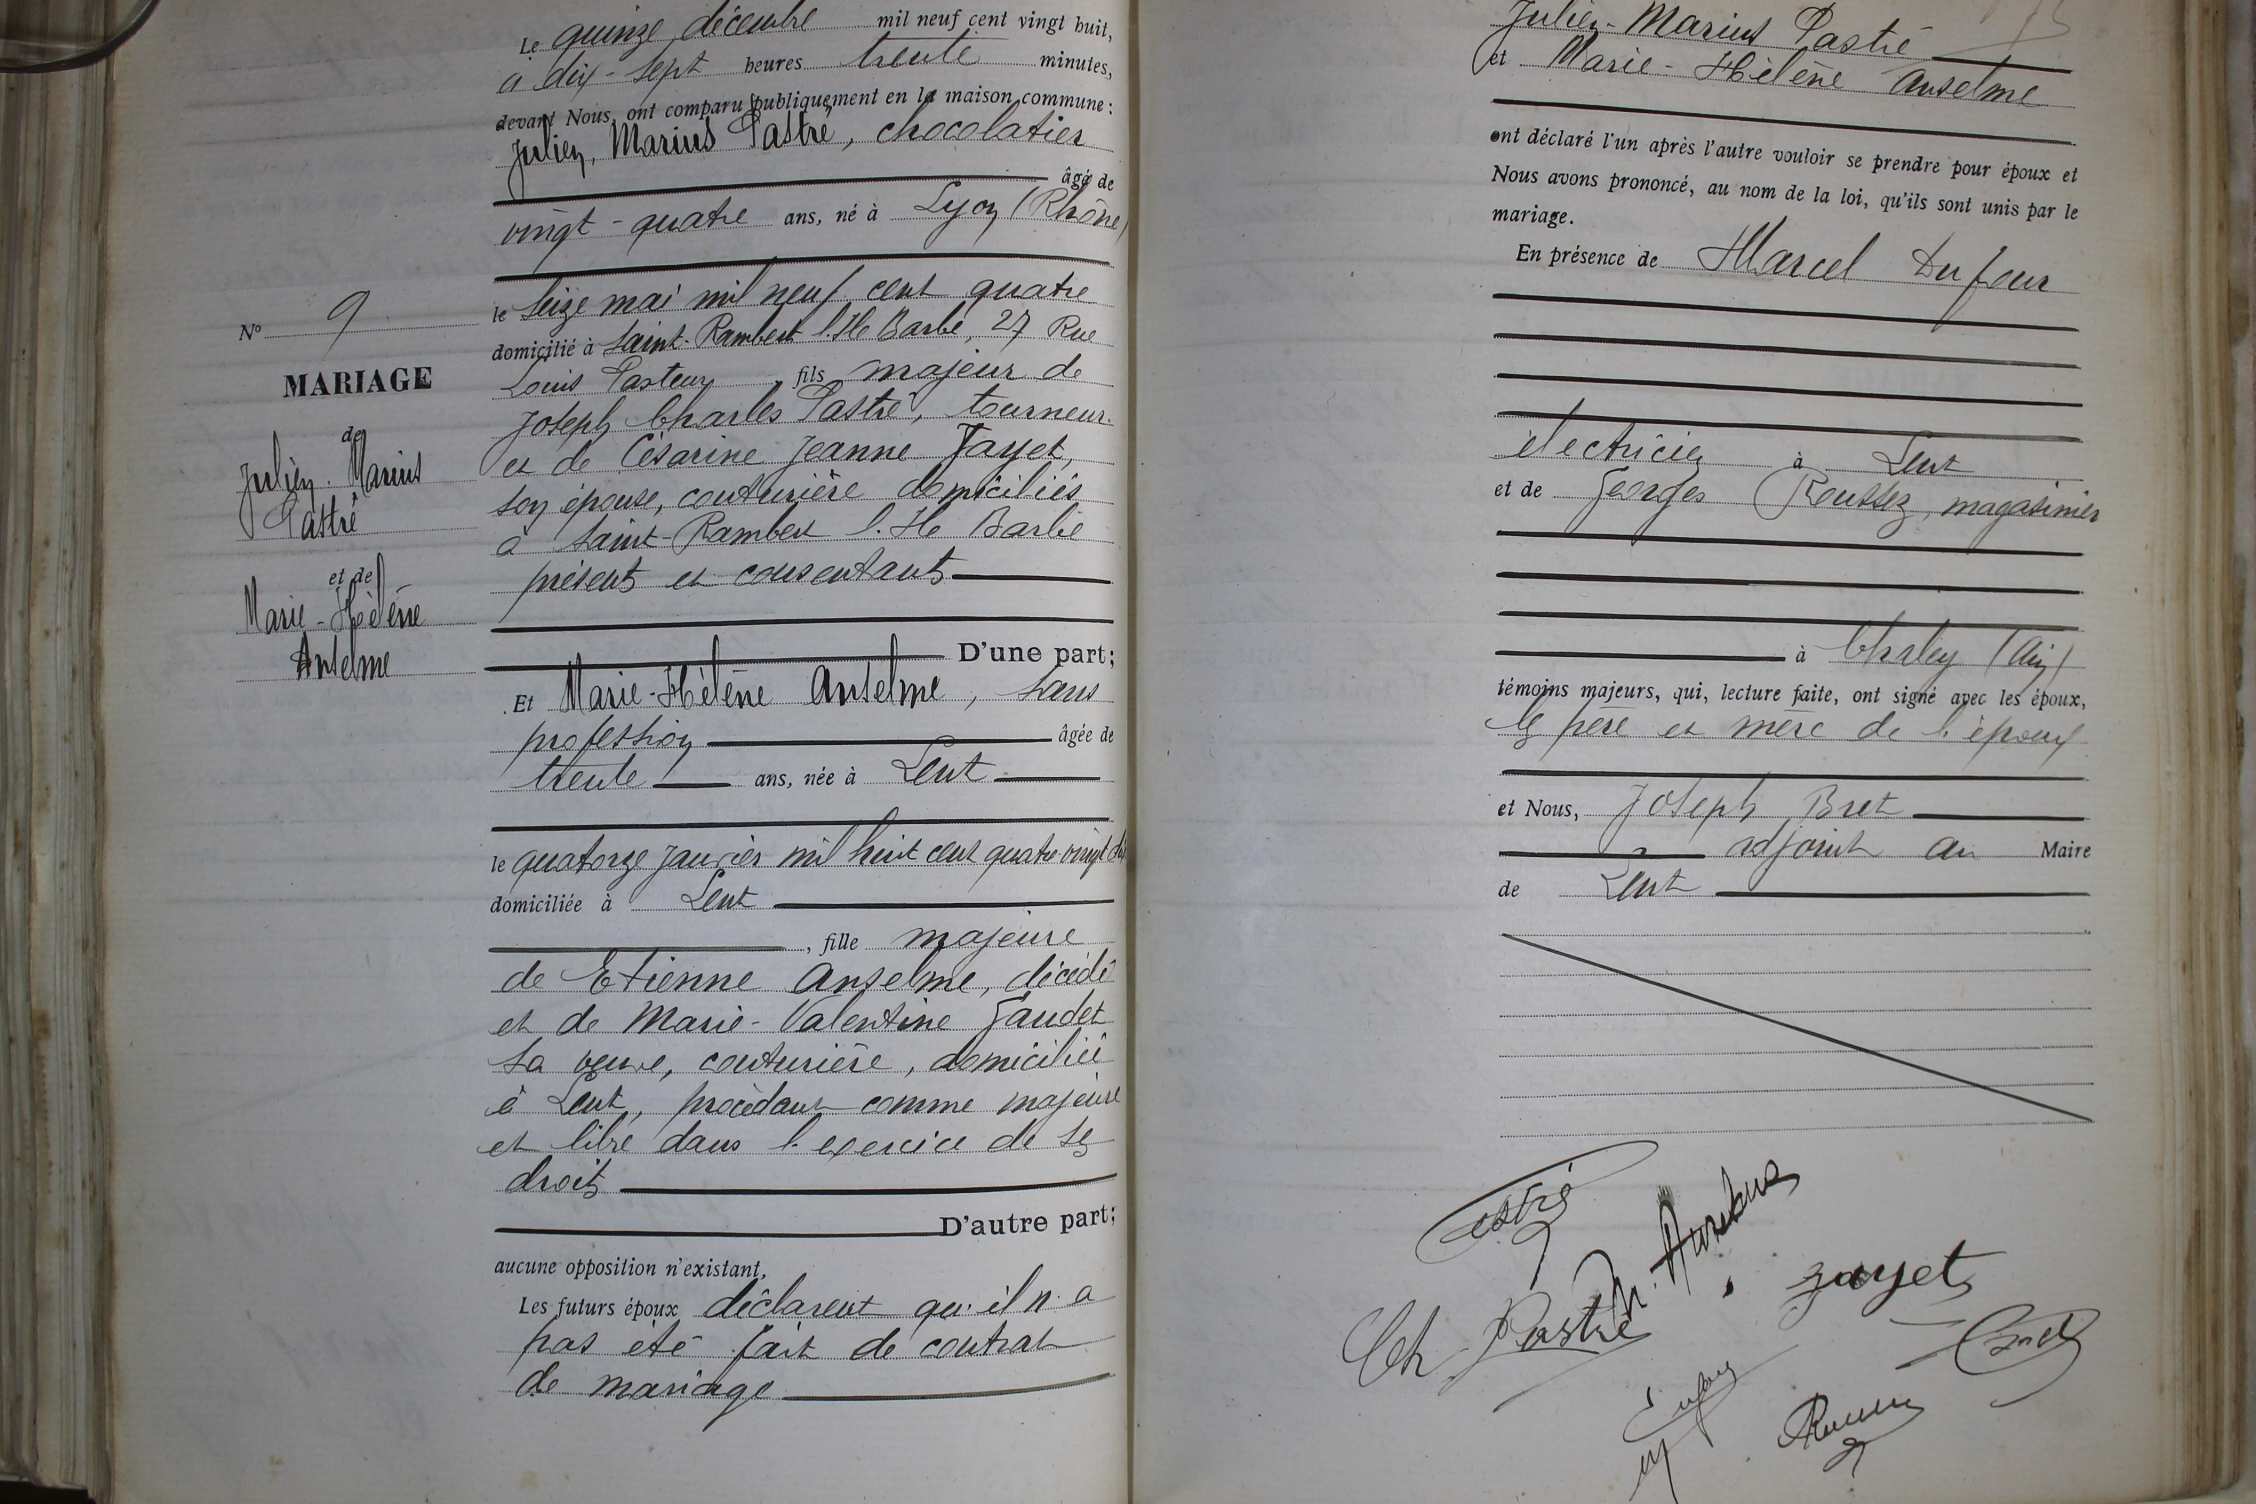 Le quinze décembre mil neuf cent vingt huit,
à dix-sept heures trente minutes,
devant Nous, ont comparu publiquement en la maison commune :
Julien, Marius Pastré, chocolatier
âgé de
vingt-quatre ans, né à Lyon (Rhône)
le seize mai mil neuf cent quatre
domicilié à Saint-Rambert l'Ile Barbe, 27 Rue
Louis Pasteur, fils majeur de
Joseph Charles Pastré, tourneur
et de Césarine Jeanne Jayet,
son épouse, couturière domiciliés
à Saint-Rambert l'Ile Barbe
présents et consentants
D'une part;
Et Marie-Hélène Anselme, sans
profession âgée de
trente ans, née à Lent
le quatorze janvier mil huit cent quatre vingt dix
domiciliée à Lent
, fille majeure
de Etienne Anselme, décédé
et de Marie-Valentine Gaudet
sa veuve, couturière, domiciliée
à Lent, procédant comme majeure
et libre dans l'exercice de ses
droits
D'autre part;
aucune opposition n'existant,
Les futurs époux déclarent qu'il n'a
pas été fait de contrat
de mariage
No 9
MARIAGE
de
Julien Marius
Pastré
et de
Marie-Hélène
Anselme
Julien-Marius Pastré
et Marie-Hélène Anselme
ont déclaré l'un après l'autre vouloir se prendre pour époux et
Nous avons prononcé, au nom de la loi, qu'ils sont unis par le
mariage.
En présence de Marcel Dufour
électricien à Lent
et de Georges Roussez, magasinier
à (Ain)
témoins majeurs, qui, lecture faite, ont signé avec les époux,
les père et mère de l'époux
et Nous, Joseph Bret
adjoint au Maire
de Lent
Pastré
H. Anselme
Jayet
Ch Pastré
Bret